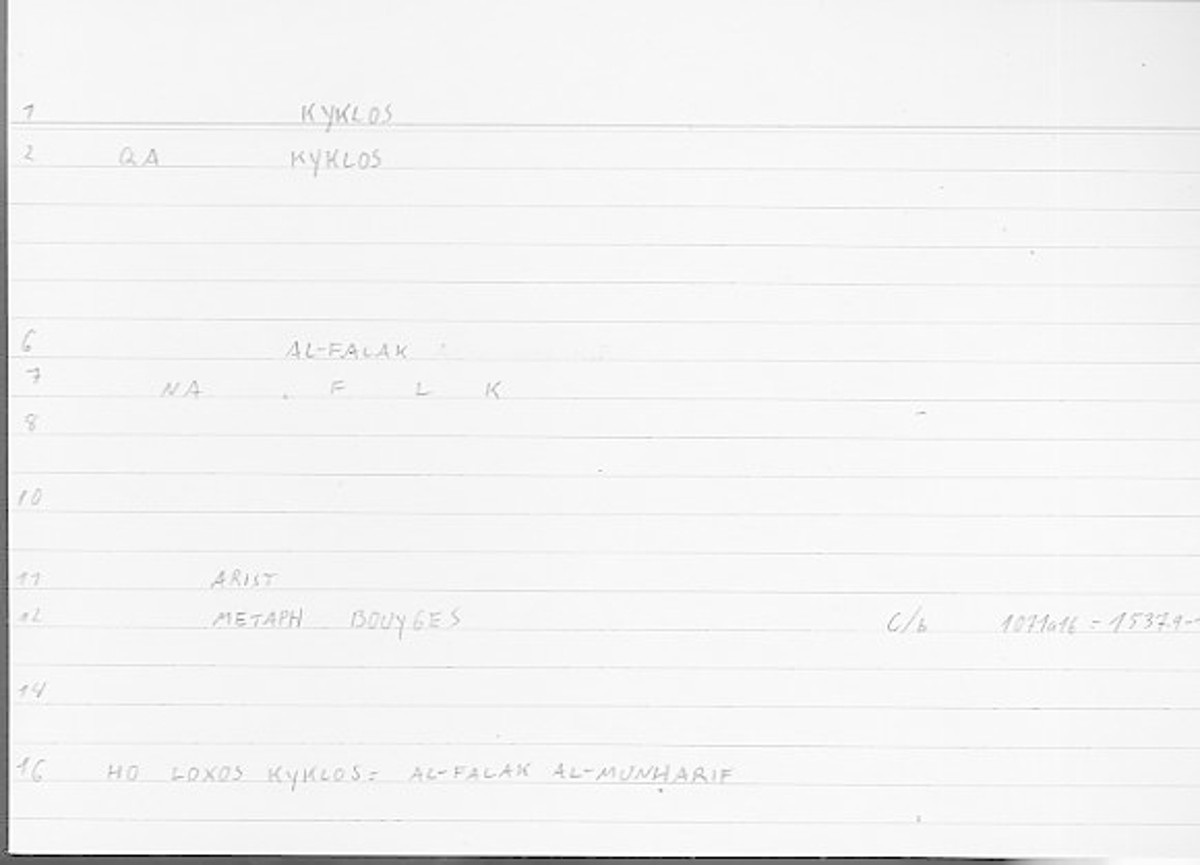 1 KYKLOS
2 QA KYKLOS
6 AL-FALAK
7 NA . F L K
8
10
11 ARIST
12 METAPH BOUYGES C/b 1071a16 = 1537.9-1
14
16 HO LOXOS KYKLOS= AL-FALAK AL-MUNḤARIF